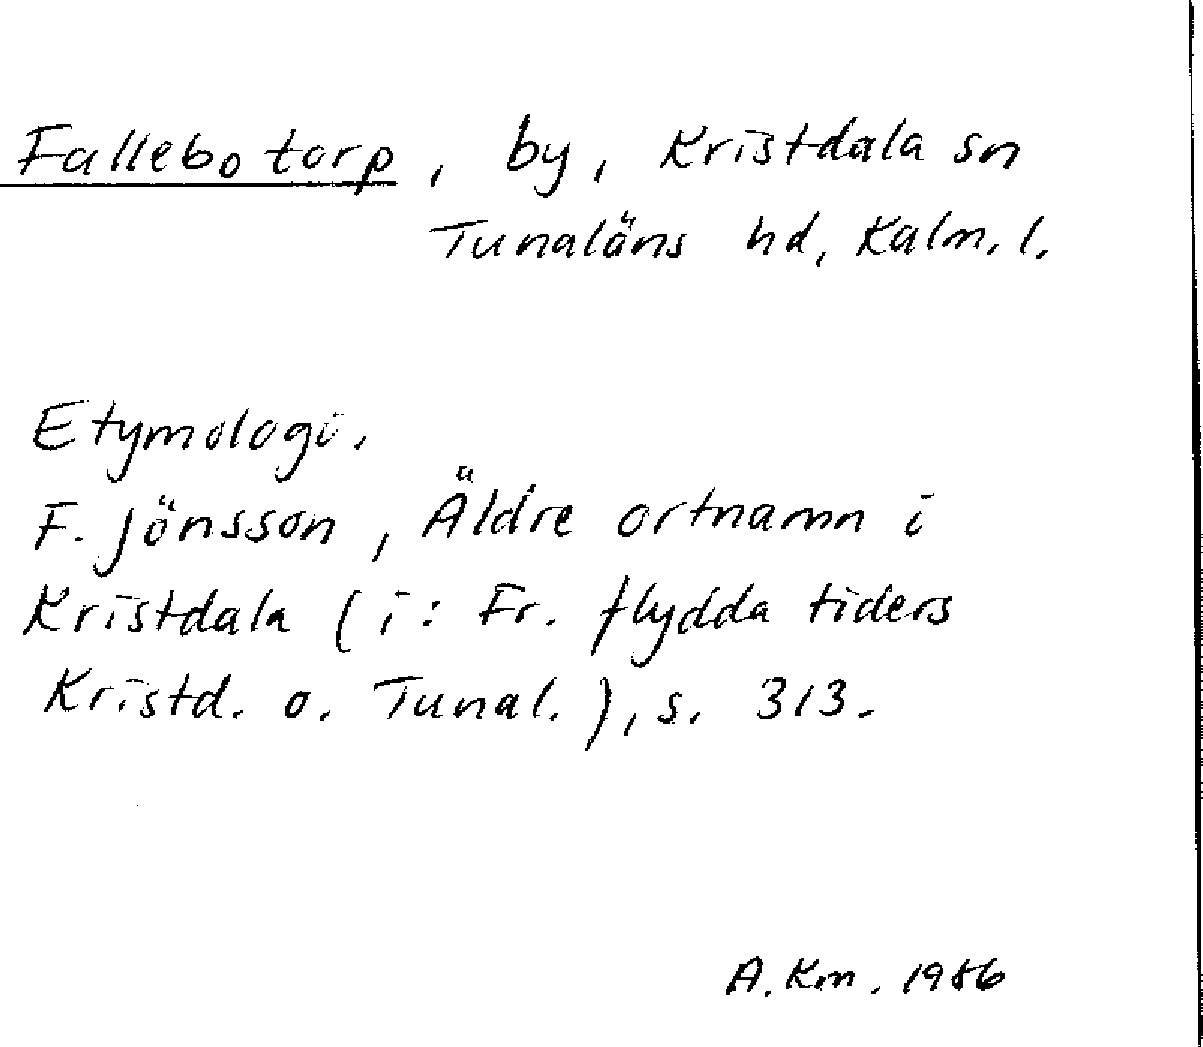 Fallebo torp, by, Kristdala sn
Tunaläns hd, Kalm. l.
Etymologi.
F. Jönsson, Äldre ortnamn i
Kristdala (i: Fr. flydda tiders
Kristd. o. Tunal.), s. 313.
A. Km. 1986